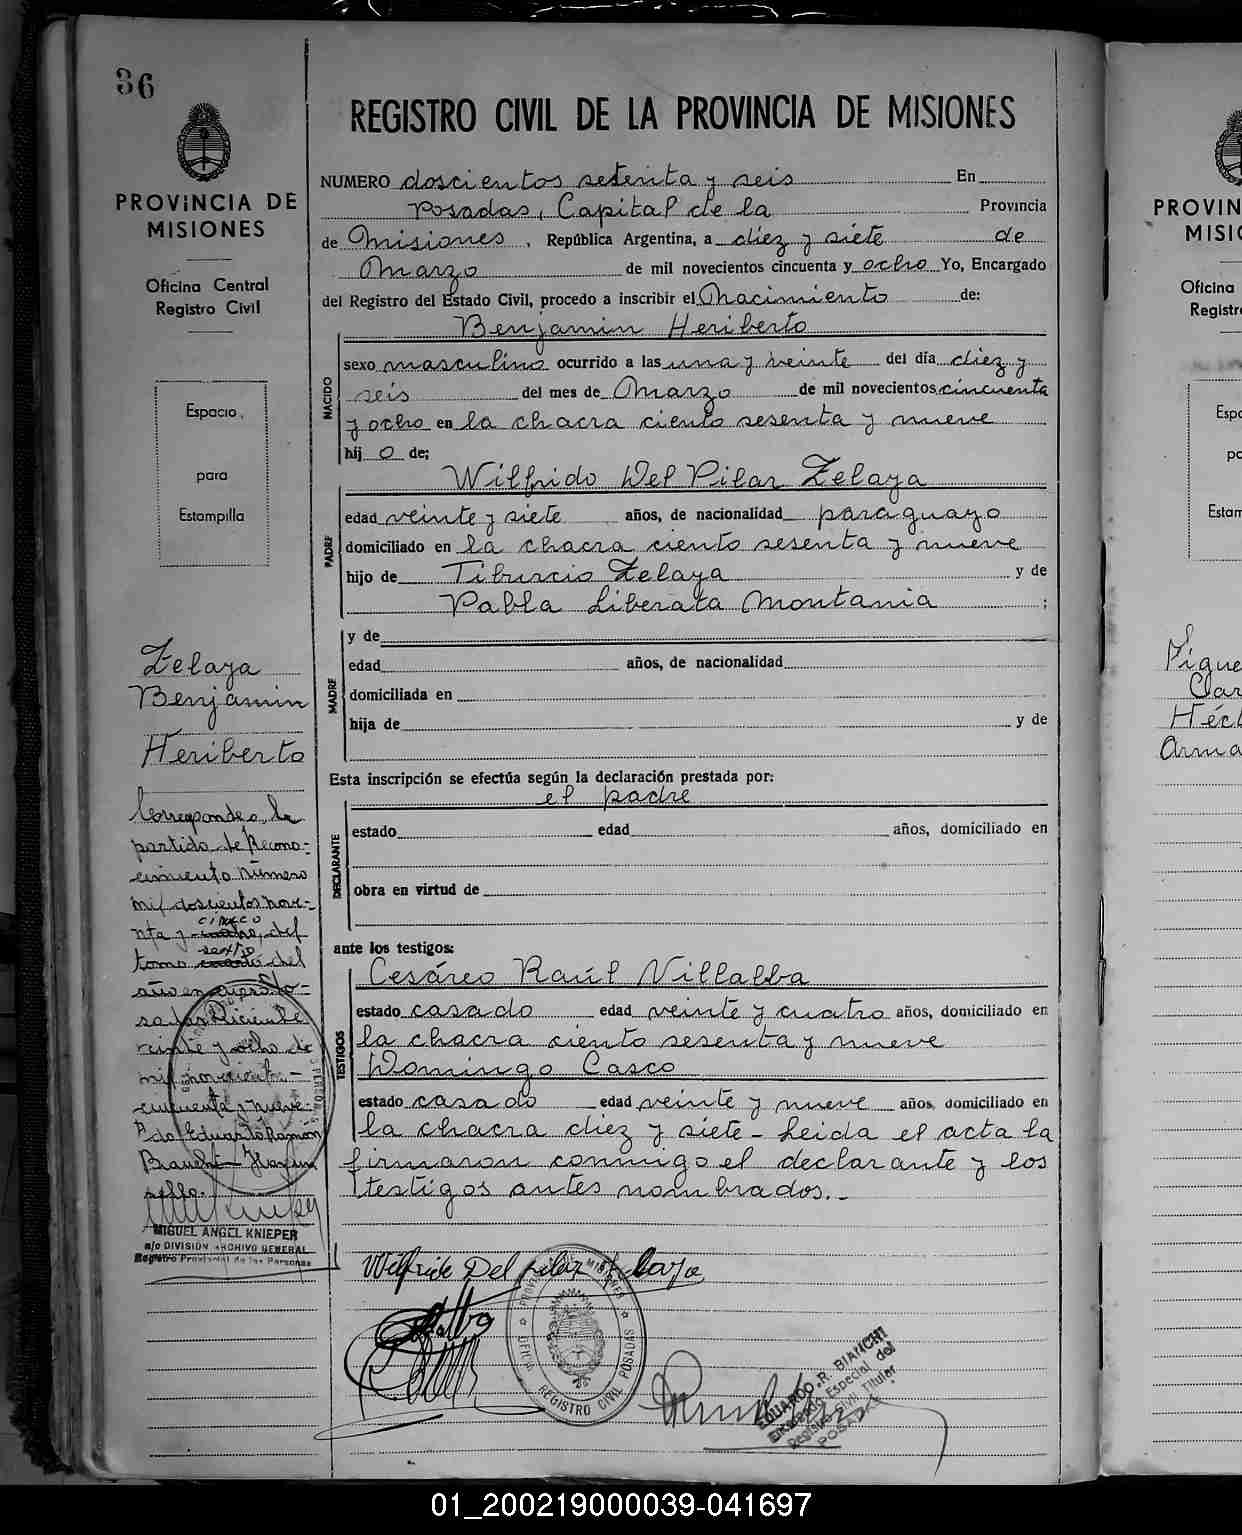 36
PROVINCIA DE
MISIONES
Oficina Central
Registro Civil
Espacio
para
Estampilla
Zelaya
Benjamin
Heriberto
Corresponde a la
partida de Recono-
cimiento número
mil doscientos nove-
cinco
nta y cuatro, del
sexto
tomo cuarto del
año en curso. Po-
sadas Diciembre
veinte y ocho de
mil novecientos
cincuenta y nueve.
Fdo Eduardo Ramón
Bianchi - Hay un
sello.
MIGUEL ANGEL KNIEPER
a/c DIVISION ARCHIVO GENERAL
Registro Provincial de las Personas
REGISTRO CIVIL DE LA PROVINCIA DE MISIONES
NUMERO doscientos setenta y seis En
Posadas, Capital de la Provincia
de Misiones, República Argentina, a diez y siete de
Marzo de mil novecientos cincuenta y ocho Yo, Encargado
del Registro del Estado Civil, procedo a inscribir el Nacimiento de:
Benjamin Heriberto
NACIDO
sexo masculino ocurrido a las una y veinte del día diez y
seis del mes de Marzo de mil novecientos cincuenta
y ocho en la chacra ciento sesenta y nueve
hij o de;
Wilfrido Del Pilar Zelaya
PADRE
edad veinte y siete años, de nacionalidad paraguayo
domiciliado en la chacra ciento sesenta y nueve
hijo de Tiburcio Zelaya y de
Pabla Liberata Montania ;
MADRE
y de
edad años, de nacionalidad
domiciliada en
hija de y de
Esta inscripción se efectúa según la declaración prestada por:
el padre
DECLARANTE
estado edad años, domiciliado en
obra en virtud de
ante los testigos:
TESTIGOS
Cesáreo Raúl Villalba
estado casado edad veinte y cuatro años, domiciliado en
la chacra ciento sesenta y nueve
Domingo Casco
estado casado edad veinte y nueve años, domiciliado en
la chacra diez y siete - Leida el acta la
firmaron conmigo el declarante y los
testigos antes nombrados.-
Wilfrido Del Pilar Zelaya
REGISTRO CIVIL POSADAS
EDUARDO R. BIANCHI
Encargado Especial del
Registro Civil Titular
POSADAS
PROVIN
MISIO
Oficina
Registr
Espa
pa
Estam
Figue
Clar
Héct
Arma
01_200219000039-041697